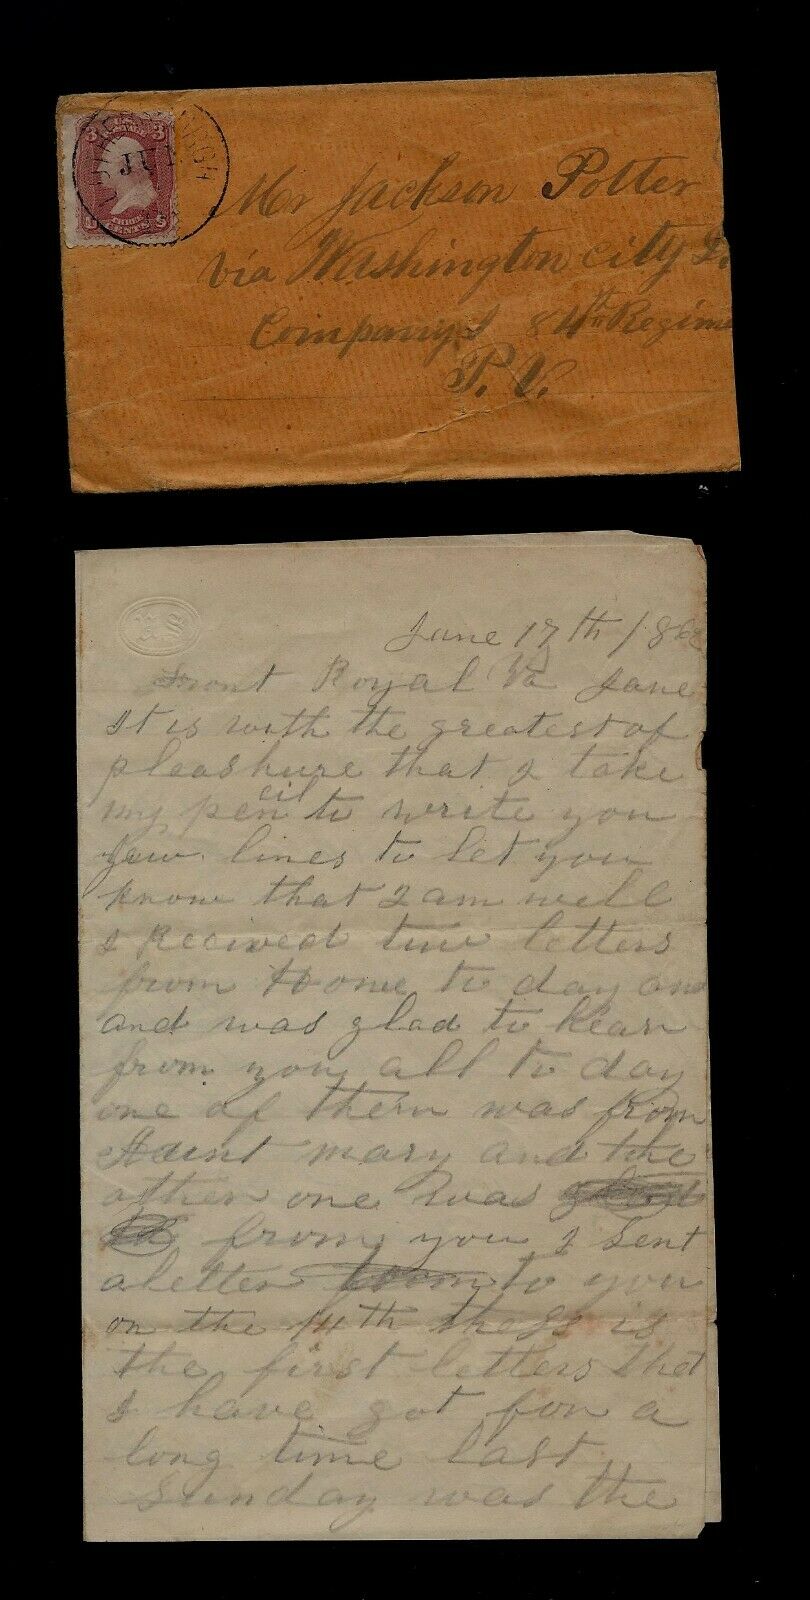 3 3
THREE
CENTS
JU
Mr Jackson Potter
via Washington City D.
Company I 84th Regime
P. V.
U S
June 17th /862
Front Royal Va June
It is with the greatest of
pleashure that I take
my pencil to write you
few lines to let you
know that I am well
I Recieved two letters
from Home to day and
and was glad to hear
from you all to day
one of them was from
Aunt mary and the
other one was
from you I sent
a letter to you
on the 14th thess is
the first letters that
I have got for a
long time last
Sunday was the